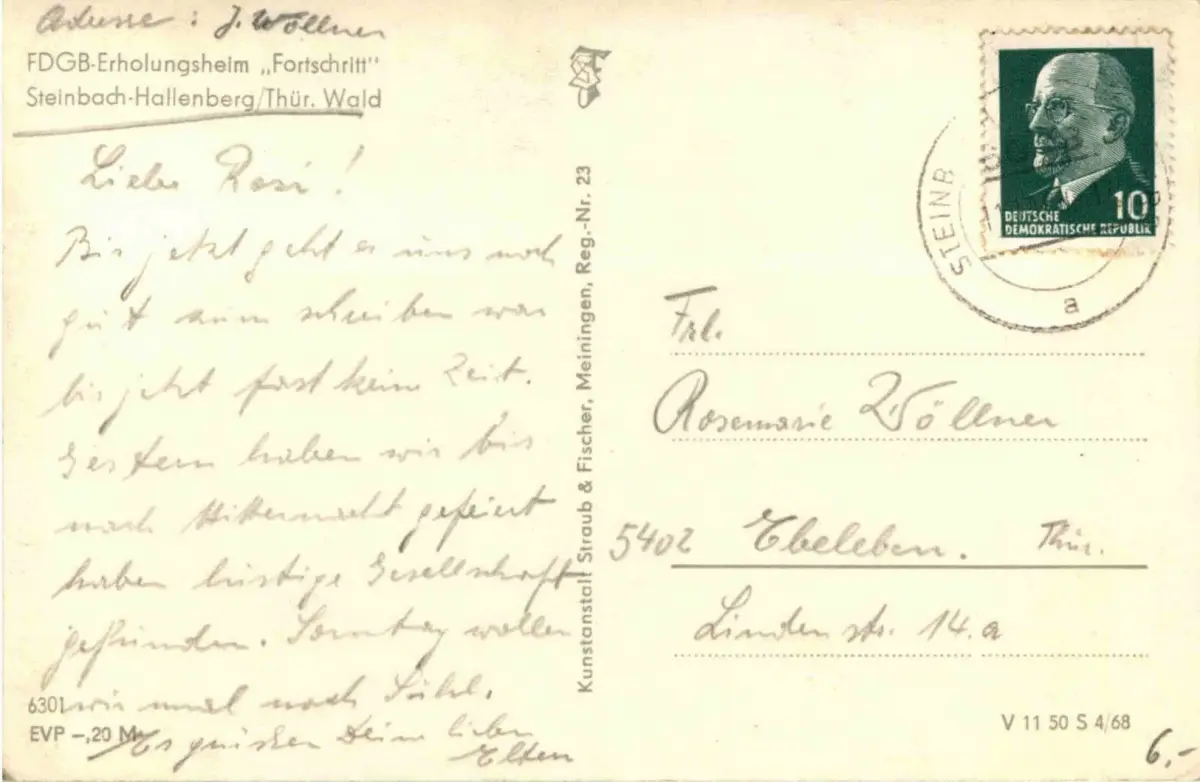 Adresse : J. Wöllner
FDGB-Erholungsheim „Fortschritt"
Steinbach-Hallenberg/Thür. Wald
Liebe Rosi!
Bis jetzt geht es uns noch
gut zum schreiben war
bis jetzt fast keine Zeit.
Gestern haben wir bis
nach Mitternacht gefeiert
haben lustige Gesellschaft
gefunden. Sonntag wollen
wir mal nach Suhl.
Es grüßen Deine lieben
Eltern
6301
EVP -,20 M
Kunstanstalt Straub & Fischer, Meiningen, Reg.-Nr. 23
STEINB
a
10
DEUTSCHE
DEMOKRATISCHE REPUBLIK
Frl.
Rosemarie Wöllner
5402 Ebeleben. Thür.
Lindenstr. 14.a
V 11 50 S 4/68
6.-